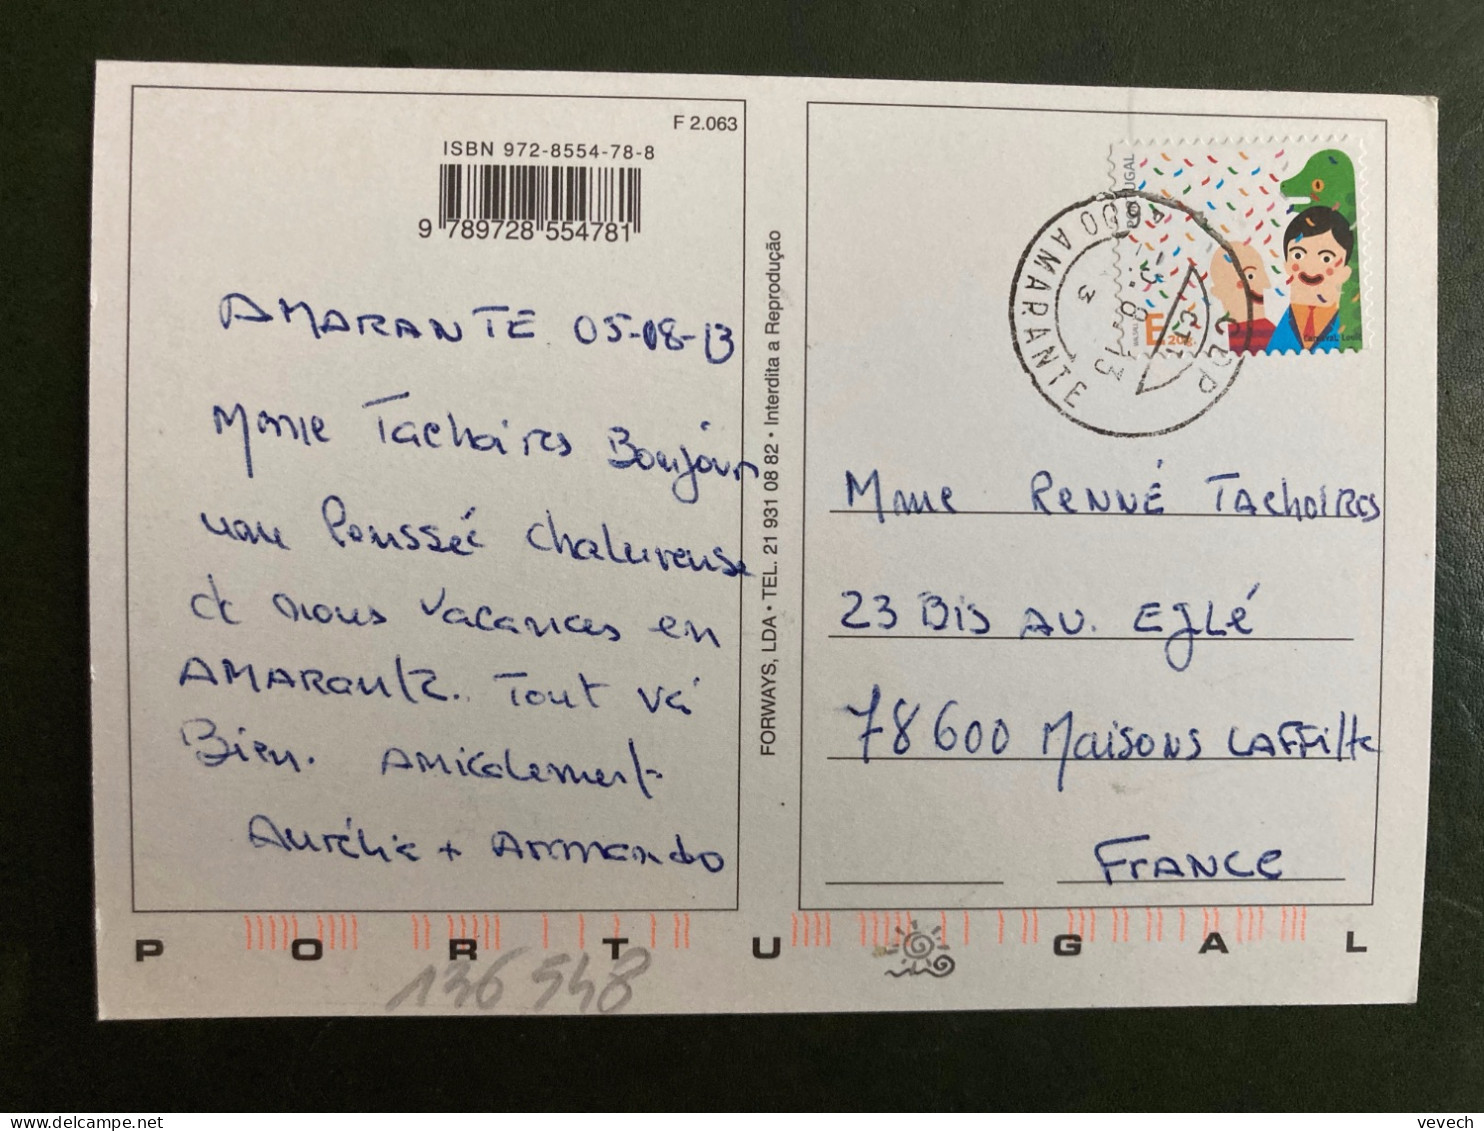 F 2.063
ISBN 972-8554-78-8
9 789728 554781
AMARANTE 05-08-13
Mme Tachoires Bonjour
une Poussée chaleureuse
de nous vacances en
AMARante. Tout và
Bien. AMicalement
Aurélie + Armando
FORWAYS, LDA • TEL. 21 931 08 82 • Interdita a Reprodução
PORTUGAL
E 20g.
4600 AMARANTE
-5. 8. 13
3
Mme RENNÉ TACHOIRES
23 Bis AV. EGLÉ
78600 Maisons LAFFitte
FRANCE
PORTUGAL
136 548
vevech